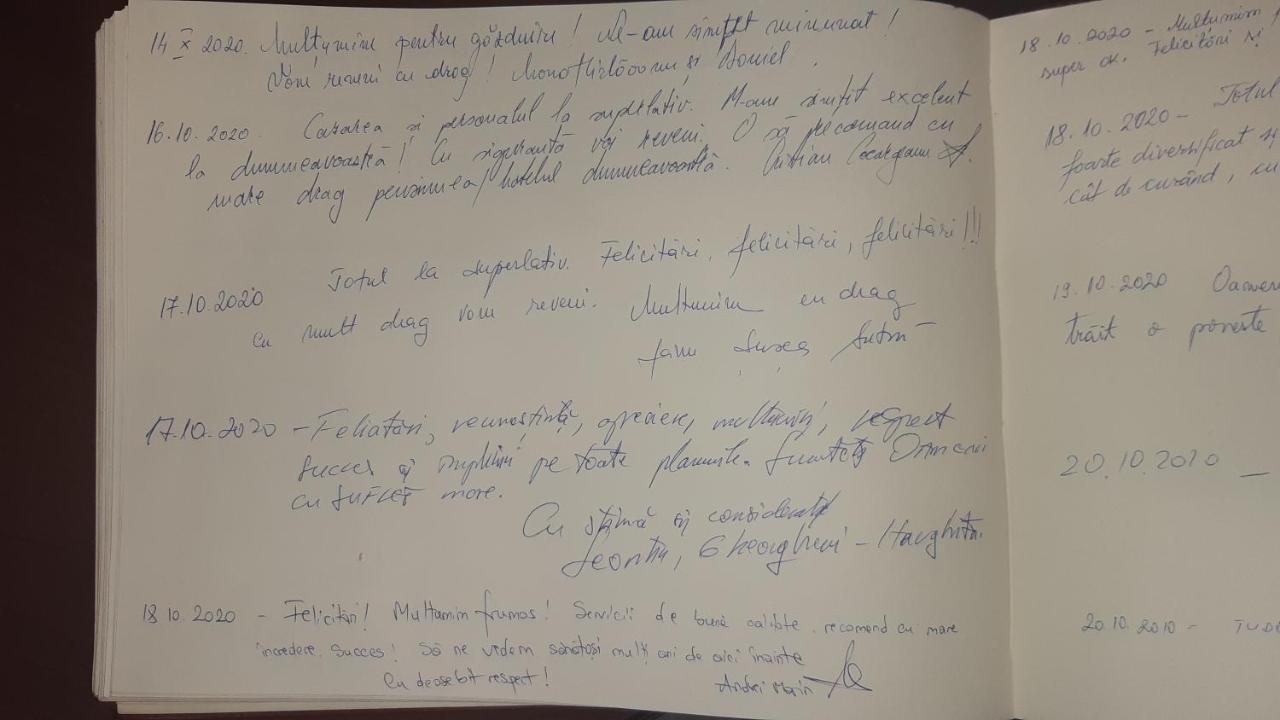 14 X 2020. Mulțumim pentru găzduire! Ne-am simțit minunat!
Vom reveni cu drag! și Daniel.
16.10.2020. Cazarea și personalul la superlativ. M-am simțit excelent
la dumneavoastră! Cu siguranță voi reveni. O să recomand cu
mare drag pensiunea/hotelul dumneavoastră. Cristian
17.10.2020 Totul la superlativ. Felicitări, felicitări, felicitări!!!
cu mult drag vom reveni. Multumim cu drag
fam
17.10.2020 - Felicitări, recunoștință, apreciere, mulțumiri, respect
succes și împliniri pe toate planurile. Sunteți Oameni
cu suflet mare.
Cu stimă și considerație
Leontin, Gheorgheni - Harghita.
18 10.2020 - Felicitări! Multumim frumos! Servicii de bună calibte. recomend cu mare
încredere. Succes! Să ne vedem sănătoși mulți ani de aici înainte
Cu deosebit respect! Andrei Marin
18.10.2020 - Mulțumim
super ok. Felicitări și
18.10.2020 - Totul
foarte diversificat și
cât de curând, cu
19.10.2020 Oameni
trăit o poveste
20.10.2010 -
20.10.2010 - TUDO